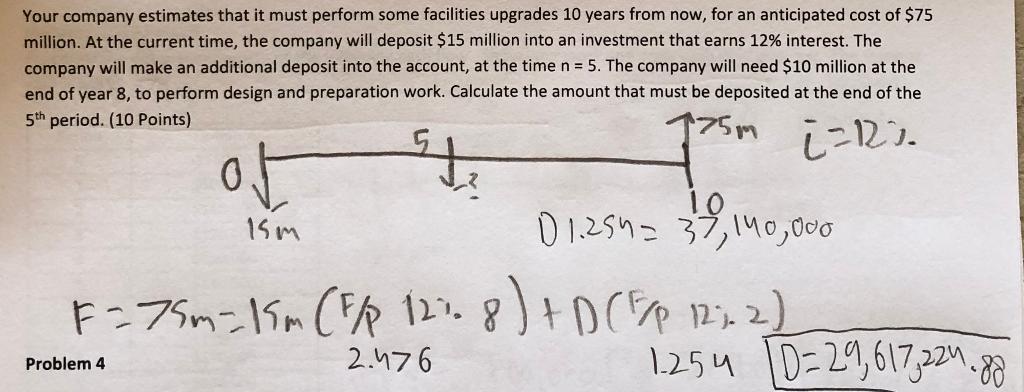 Your company estimates that it must perform some facilities upgrades 10 years from now, for an anticipated cost of $75
million. At the current time, the company will deposit $15 million into an investment that earns 12% interest. The
company will make an additional deposit into the account, at the time n = 5. The company will need $10 million at the
end of year 8, to perform design and preparation work. Calculate the amount that must be deposited at the end of the
5th period. (10 Points)
75m i=12%
0 5 ?
15m 10
D 1.254 = 37,140,000
F = 75m = 15m (F/P 12% 8) + D (F/P 12% 2)
2.476 1.254 D=29,617,224.88
Problem 4